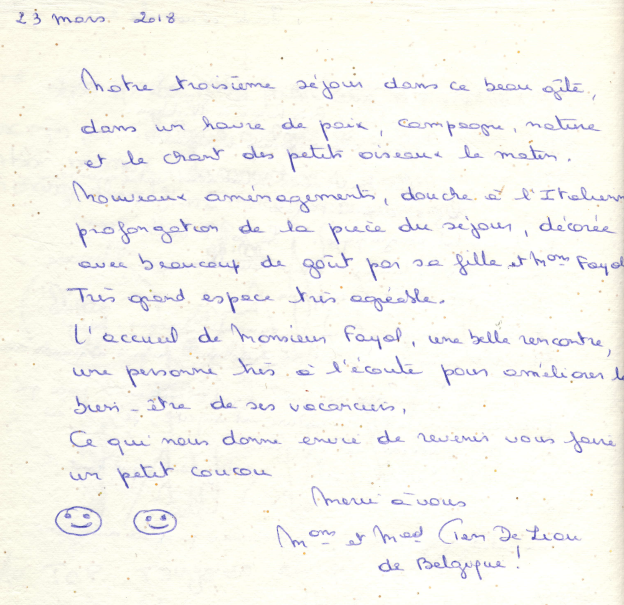 23 mars. 2018
Notre troisième séjour dans ce beau gîte,
dans un havre de paix, campagne, nature
et le chant des petits oiseaux le matin.
Nouveaux aménagements, douche à l'Italienn
prolongation de la pièce du séjour, décorée
avec beaucoup de goût par sa fille et Mons Fayol
Très grand espace très agréable.
L'accueil de Monsieur Fayol, une belle rencontre,
une personne très à l'écoute pour améliorer le
bien-être de ses vacanciers.
Ce qui nous donne envie de revenir vous faire
un petit coucou
Merci à vous
Mons et Mad De
de Belgique!